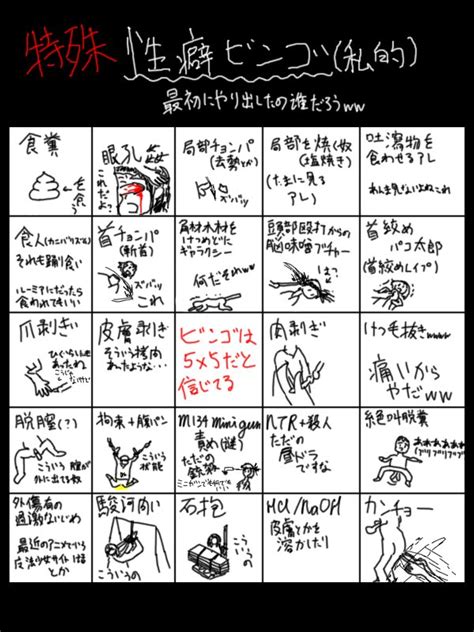 特殊 性癖ビンゴ(私的)
最初にやり出したの誰だろうww
食糞
を食う
眼孔
これだよ?
局部チョンパ
(去勢とか)
ズバッ
局部を焼く奴
(塩焼き)
(たまに見る
アレ)
吐瀉物を
食わせるアレ
食人(カニバリズム)
それも踊り食い
ルーミアにだったら
食われてもいい
首チョンパ
(斬首)
ズバッ
これ
角材木材を
けつめどに
ギャラクシー
何だそれw
頭部殴打からの
脳味噌ブチャー
首絞め
パコ太郎
(首絞めレイプ)
爪剥ぎい
皮膚剥ぎ
そういう拷問
あったような…
ビンゴは
5×5だと
信じてる
肉剥ぎ
けつ毛抜きwww
痛いから
やだww
脱膣(?)
こういう
外に出てる奴
拘束+腹パン
こういう
状態
M134 minigun
責め(謎)
ただの
NTR+殺人
ただの
昼ドラ
ですな
絶叫脱糞
外傷有の
過激ないじめ
最近のアニメでいう
魔法少女サイト
とか
駿河問い
こういうの
石抱
こういうの
HCl/NaOH
皮膚とかを
溶かしたり
カンチョー